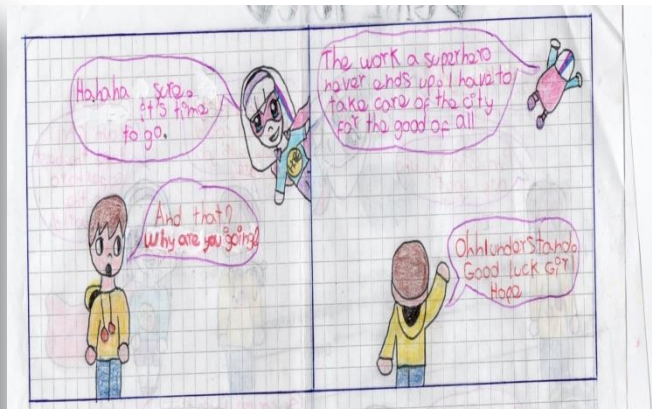 Ha,haha sure.
it's time
to go.
And that?
Why are you going?
The work a superhero
never ends up. I have to
take care of the city
for the good of all
Ohh I understand.
Good luck Girl
Hope